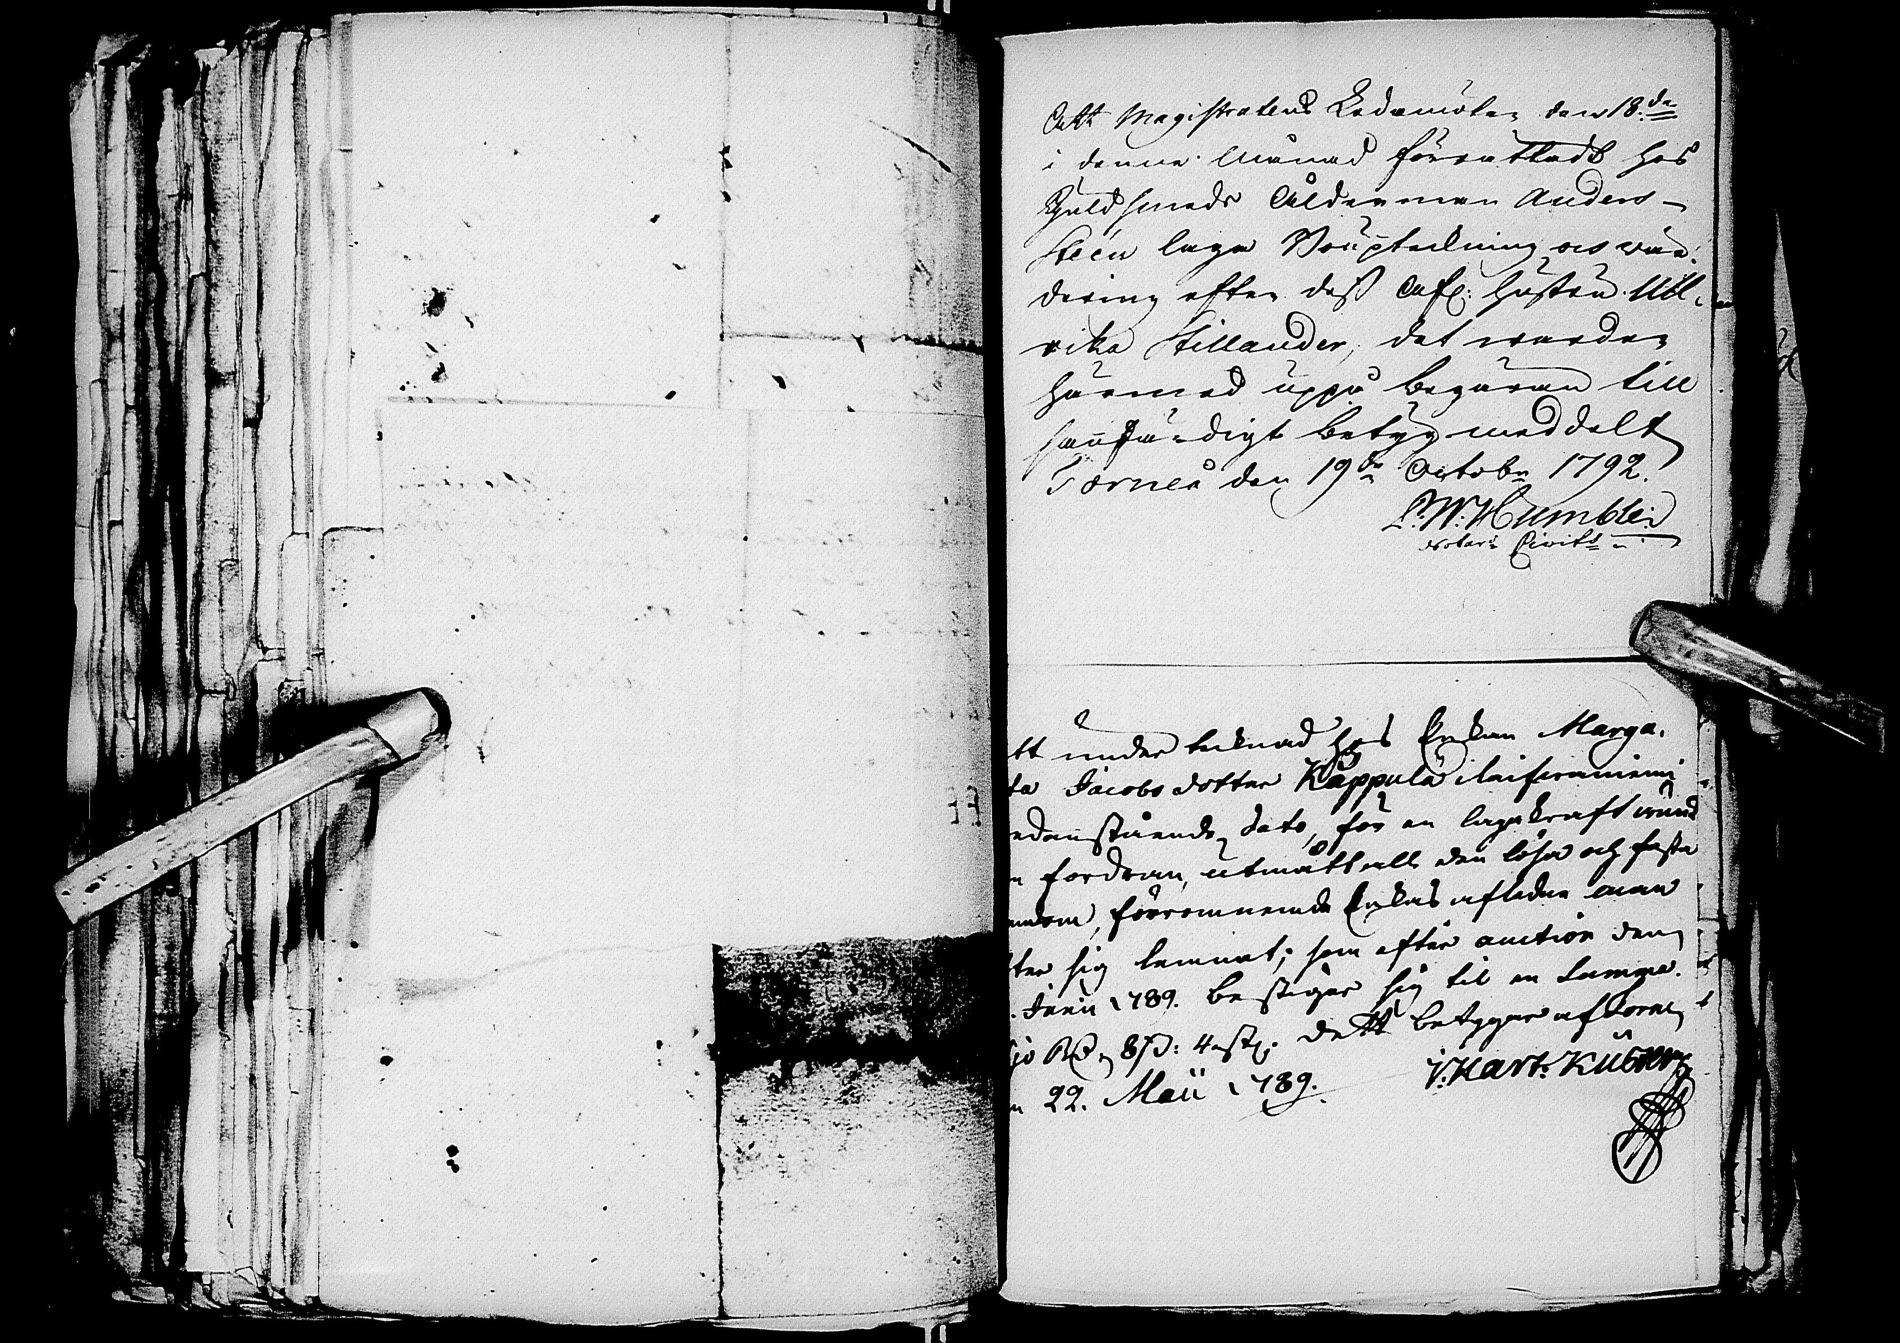 Att Magistratens Ledamöter den 18:de
i denne Månad förrättadt hos
Guldsmeds Ålderman Anders
Steen laga Bouptekning och wär-
dering efter dess Afl: Hustru Ul-
rika Stillander, det warder
härmed uppå begäran till
sanfärdigt betyg meddelt
Torneå den 19de Octobr 1792.
P. W. Humble
Notari: Civit:
tt undertecknad hos Enkan Marga-
ta Jacobsdotter Käppulä i
edanstående dato, för en lagakraft wund
n fordran, utmätt all den lösa och fasta
endom, förromnemde Enkas afledne man
ter sig lemnat; som efter auction den
Junii 1789. bestiger sig til en Summa
8 ß: 4 rst: Dett betygar af Torne
n 22. Maii 1789. J: Hart: Küb